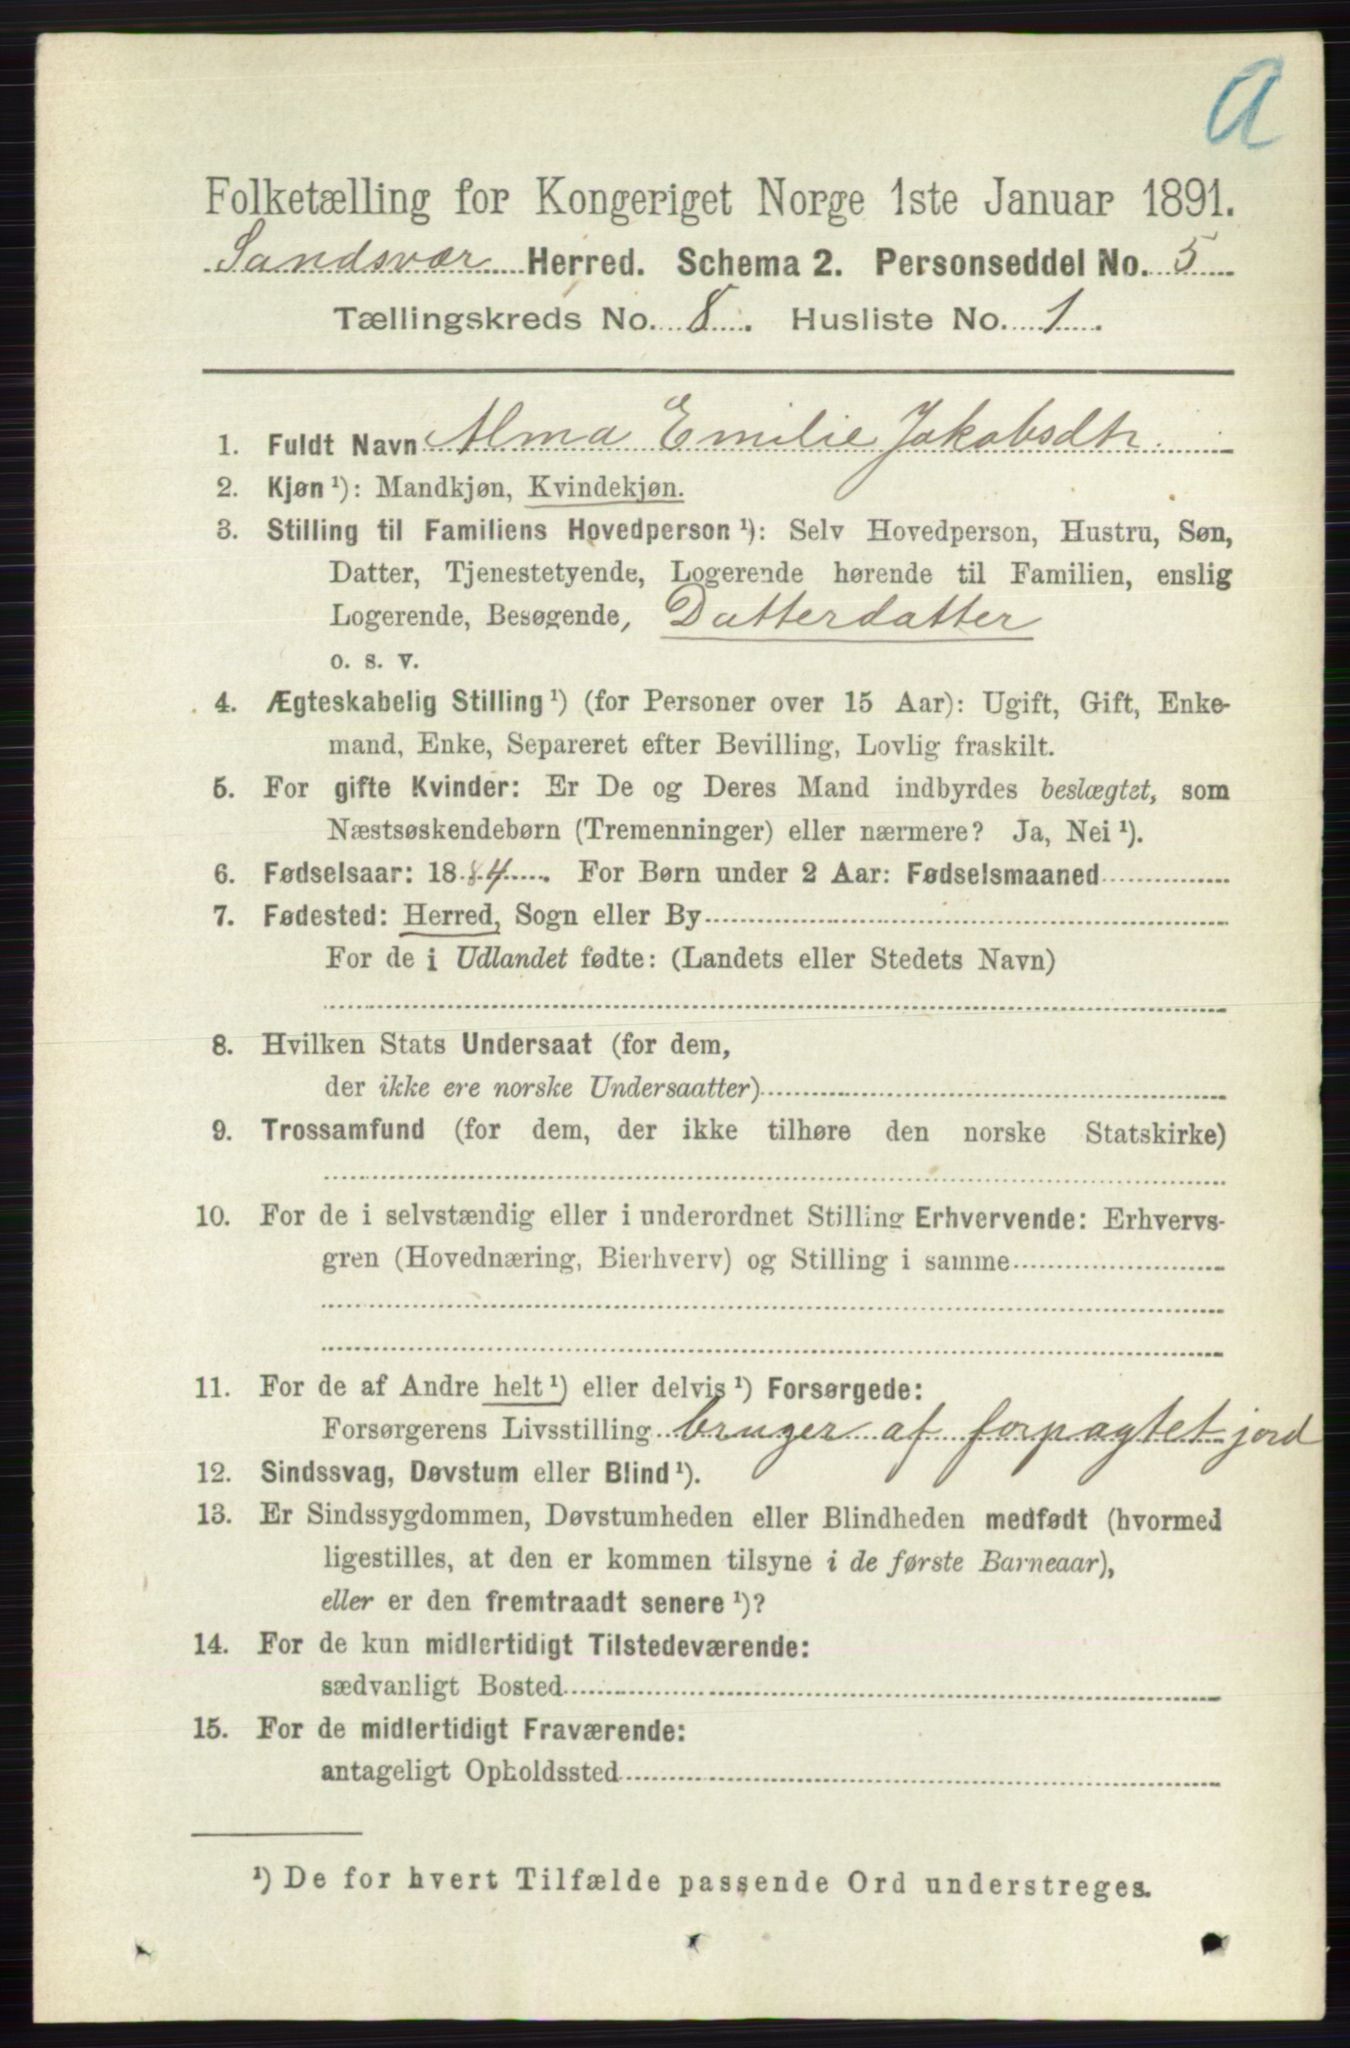 a
Folketælling for Kongeriget Norge 1ste Januar 1891.
Sandsvær Herred. Schema 2. Personseddel No. 5
Tællingskreds No. 8. Husliste No. 1.
1. Fuldt Navn Alma Emilie Jakobsdtr.
2. Kjøn ¹): Mandkjøn, Kvindekjøn.
3. Stilling til Familiens Hovedperson ¹): Selv Hovedperson, Hustru, Søn,
Datter, Tjenestetyende, Logerende hørende til Familien, enslig
Logerende, Besøgende, Datterdatter
o. s. v.
4. Ægteskabelig Stilling ¹) (for Personer over 15 Aar): Ugift, Gift, Enke-
mand, Enke, Separeret efter Bevilling, Lovlig fraskilt.
5. For gifte Kvinder: Er De og Deres Mand indbyrdes beslægtet, som
Næstsøskendebørn (Tremenninger) eller nærmere? Ja, Nei ¹).
6. Fødselsaar: 1884. For Børn under 2 Aar: Fødselsmaaned
7. Fødested: Herred, Sogn eller By
For de i Udlandet fødte: (Landets eller Stedets Navn)
8. Hvilken Stats Undersaat (for dem,
der ikke ere norske Undersaatter)
9. Trossamfund (for dem, der ikke tilhøre den norske Statskirke)
10. For de i selvstændig eller i underordnet Stilling Erhvervende: Erhvervs-
gren (Hovednæring, Bierhverv) og Stilling i samme
11. For de af Andre helt ¹) eller delvis ¹) Forsørgede:
Forsørgerens Livsstilling bruger af forpagtet jord
12. Sindssvag, Døvstum eller Blind ¹).
13. Er Sindssygdommen, Døvstumheden eller Blindheden medfødt (hvormed
ligestilles, at den er kommen tilsyne i de første Barneaar),
eller er den fremtraadt senere ¹)?
14. For de kun midlertidigt Tilstedeværende:
sædvanligt Bosted
15. For de midlertidigt Fraværende:
antageligt Opholdssted
¹) De for hvert Tilfælde passende Ord understreges.